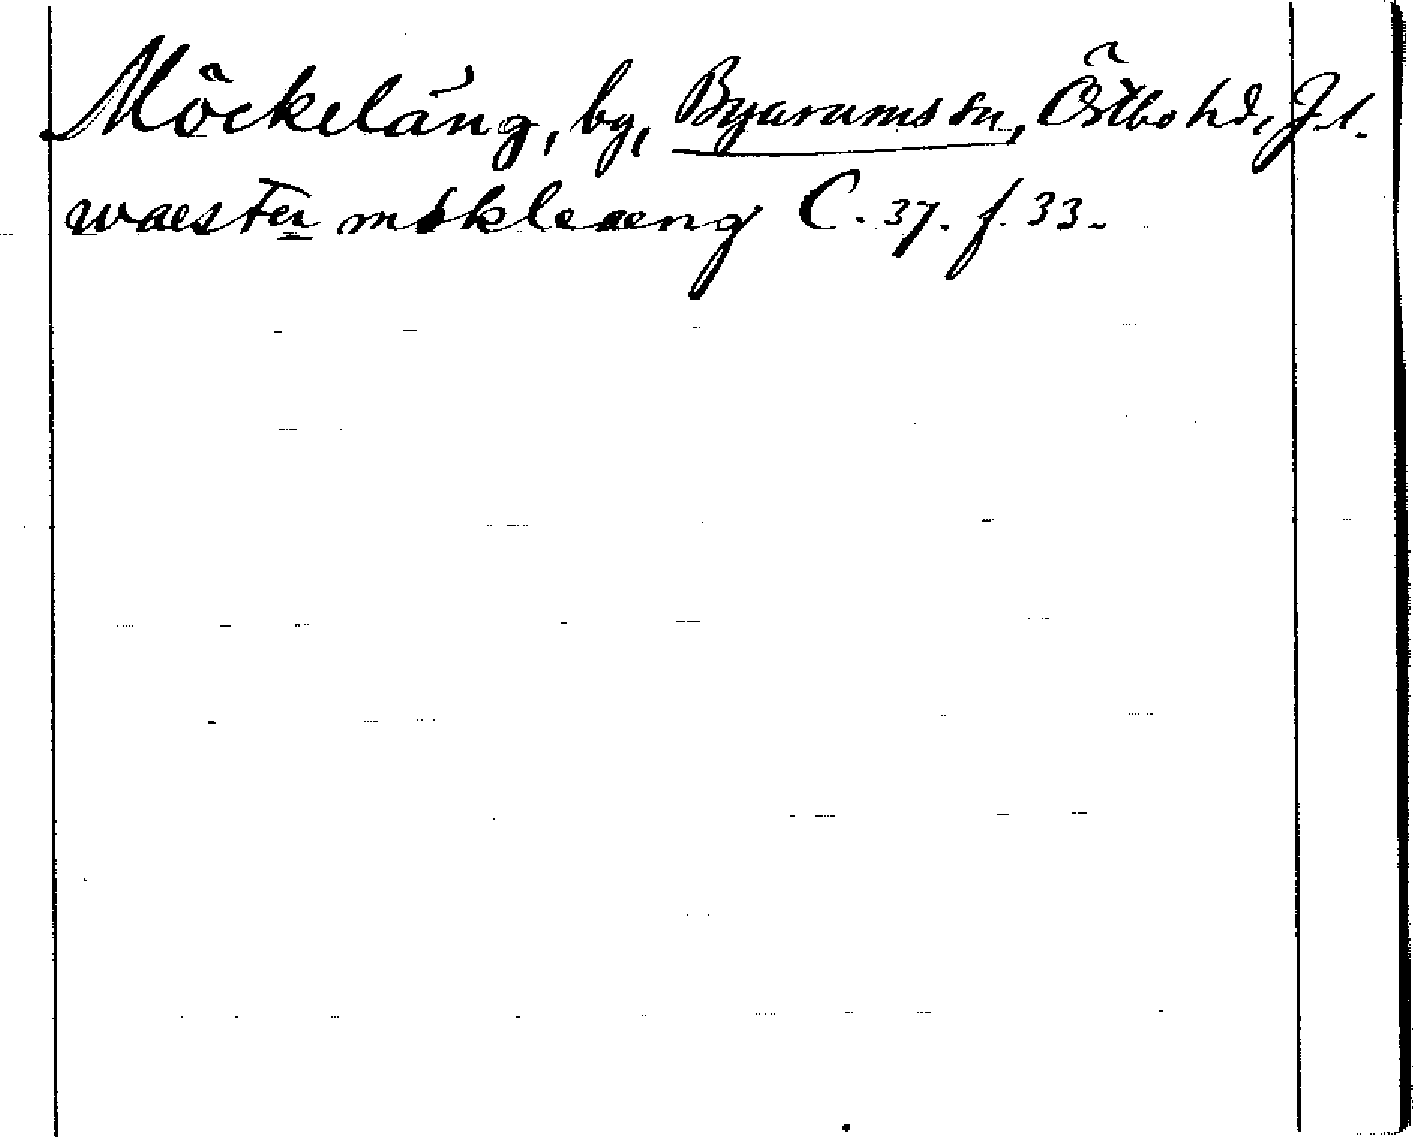 Möckeläng, by, Byarums sn, Östbo hd, J.l.
waester møklæng C. 37. f. 33.